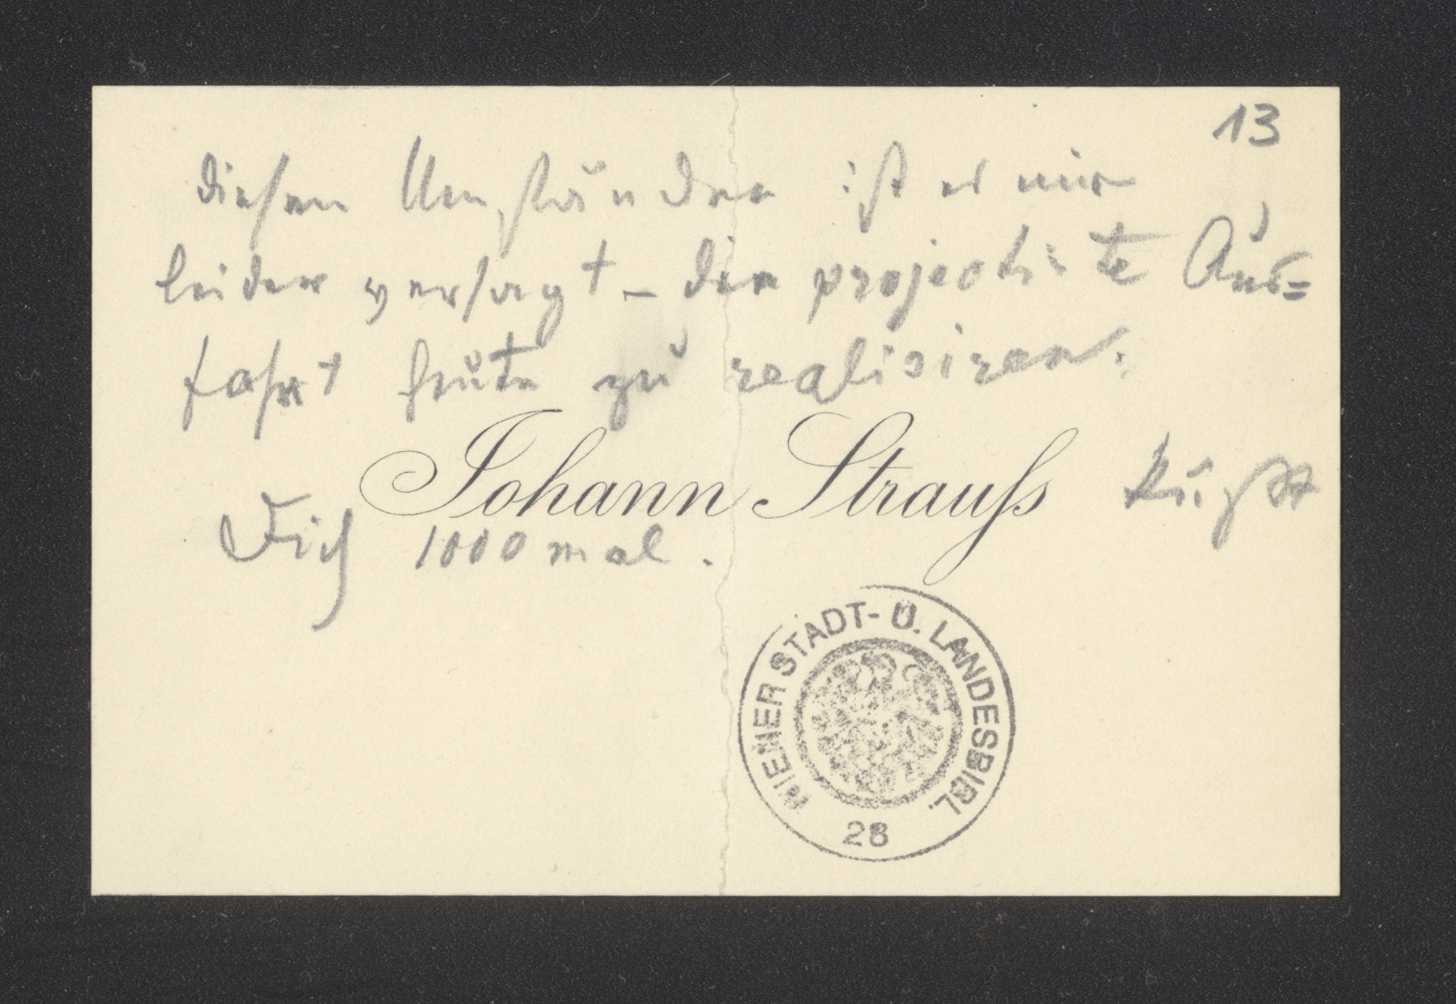 13
diesen Umständen ist es mir
leider versagt – die projectirte Aus=
fahrt heute zu realisiren.
Johann Strauss küsst
Dich 1000 mal.
WIENER STADT- U. LANDESBIBL.
28